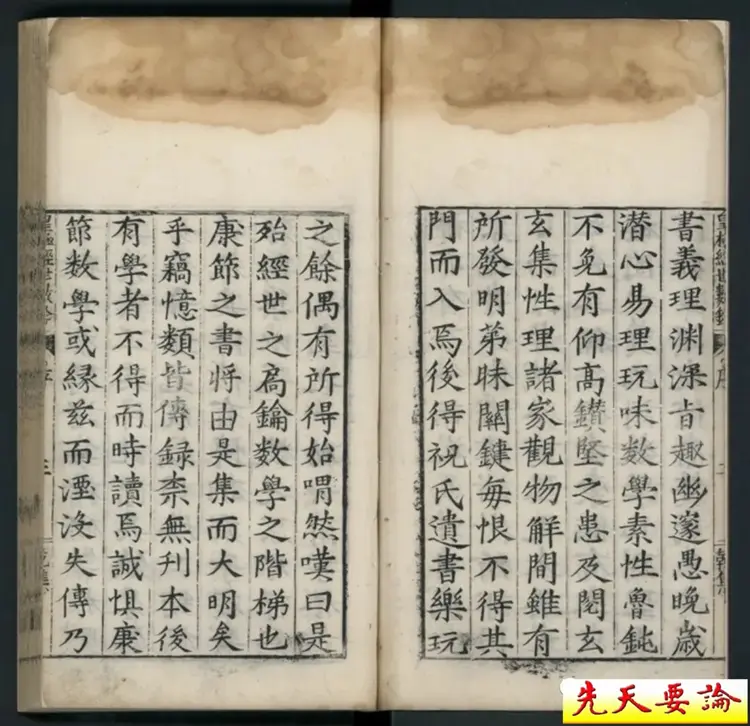 書義理渊深㫖趣幽邃愚晚歲
潜心易理玩味数學素性魯鈍
不免有仰高鑚堅之患及閱玄
玄集性理諸家觀物解間雖有
所發明第昧關鍵每恨不得其
門而入焉後得祝氏遺書樂玩
之餘偶有所得始喟然嘆曰是
殆經世之扄鑰数學之階梯也
康節之書将由是集而大明矣
乎竊憶類皆傳録柰無刊本後
有學者不得而時讀焉誠惧康
節数學或縁兹而湮没失傳乃
先天要論